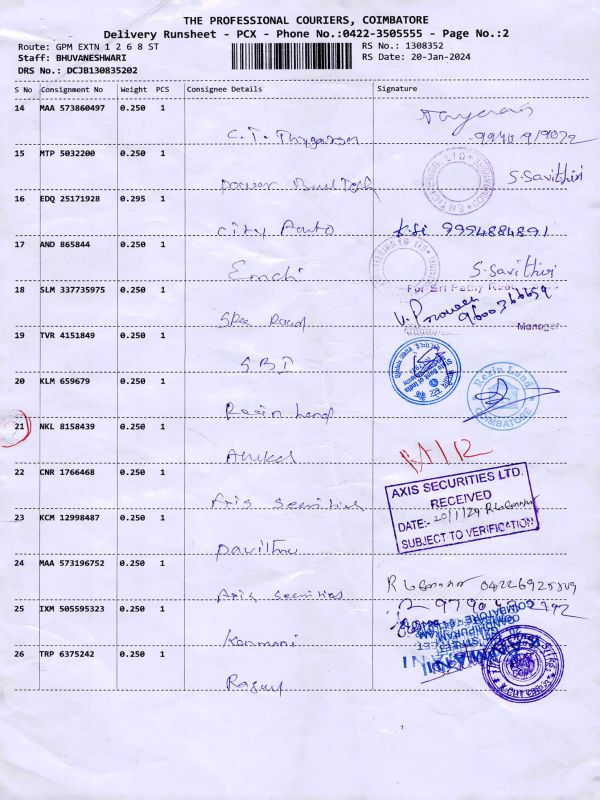 THE PROFESSIONAL COURIERS, COIMBATORE
Delivery Runsheet - PCX - Phone No.:0422-3505555 - Page No.:2
Route: GPM EXTN 1 2 6 8 ST RS No.: 1308352
Staff: BHUVANESHWARI RS Date: 20-Jan-2024
DRS No.: DCJB130835202
S No Consignment No Weight PCS Consignee Details Signature
14 MAA 573860497 0.250 1
C.T. Thygarajan
15 MTP 5032200 0.250 1
power Buil Tech S. Savithiri
16 EDQ 25171928 0.295 1
City Auto K.Si 9994884891
17 AND 865844 0.250 1
Emchi S. Savithiri
18 SLM 337735975 0.250 1 For Sri Pathy Road
V. Praveen
Manager
19 TVR 4151849 0.250 1
SBI
20 KLM 659679 0.250 1
Resin Land Rezin Land
COIMBATORE
21 NKL 8158439 0.250 1
22 CNR 1766468 0.250 1
Axis Securities
AXIS SECURITIES LTD.
RECEIVED
DATE:- 20/1/24
SUBJECT TO VERIFICATION
23 KCM 12998487 0.250 1
24 MAA 573196752 0.250 1
Axis Securities
25 IXM 505595323 0.250 1
Kanmani
26 TRP 6375242 0.250 1